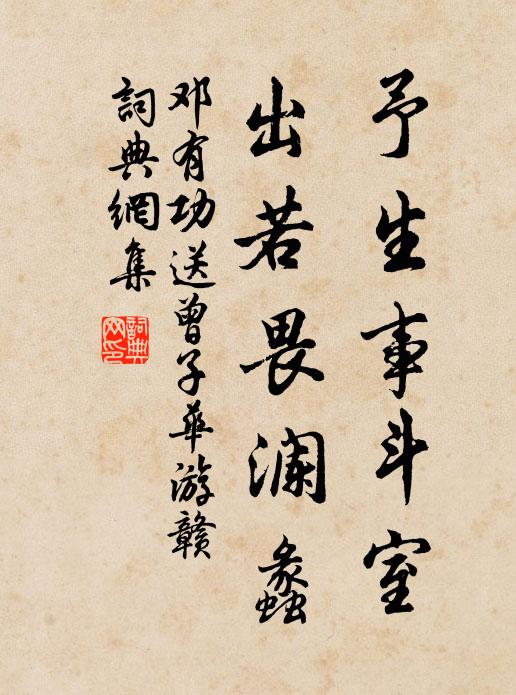 予生事斗室
出若畏澜蠡
邓有功送曾子华游赣
詞典網集
詞典网印